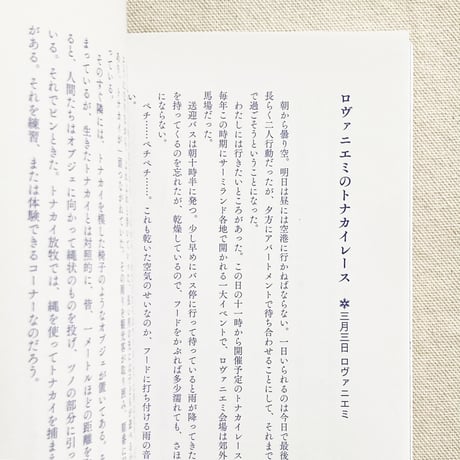 ロヴァニエミのトナカイレース ✲三月三日 ロヴァニエミ
朝から曇り空。明日は昼には空港に行かねばならない。一日いられるのは今日で最後
長らく二人行動だったが、夕方にアパートメントで待ち合わせることにして、それまで
で過ごそうということになった。
わたしには行きたいところがあった。この日の十一時から開催予定のトナカイレース
毎年この時期にサーミランド各地で開かれる一大イベントで、ロヴァニエミ会場は郊外
馬場だった。
送迎バスは朝十時半に発つ。少し早めにバス停に行って待っていると雨が降ってきた
を持ってくるのを忘れたが、乾燥しているので、フードをかぶれば多少濡れても、さほ
にならない。
ペチ……ペチペチ……。これも乾いた空気のせいなのか、フードに打ち付ける雨の音
い。
っている。
そのすぐ隣には、トナカイを模した椅子のようなオブジェが置いてある。そ
まっているが、生きたトナカイとは対照的に、皆、一メートルほどの距離を
ると、人間たちはオブジェに向かって縄状のものを投げ、ツノの部分に引っ
いる。それでピンときた。トナカイ放牧では、縄を使ってトナカイを捕ま
がある。それを練習、または体験できるコーナーなのだろう。